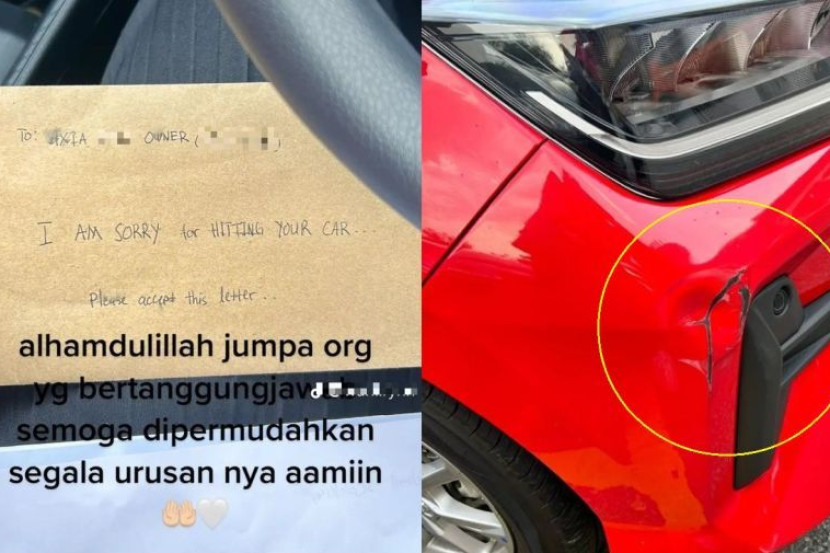 To: AXIA OWNER (
I AM SORRY for HITTING YOUR CAR...
Please accept this letter..
alhamdulillah jumpa org
yg
semoga dipermudahkan
segala urusan nya aamiin
🤲🏻🤍